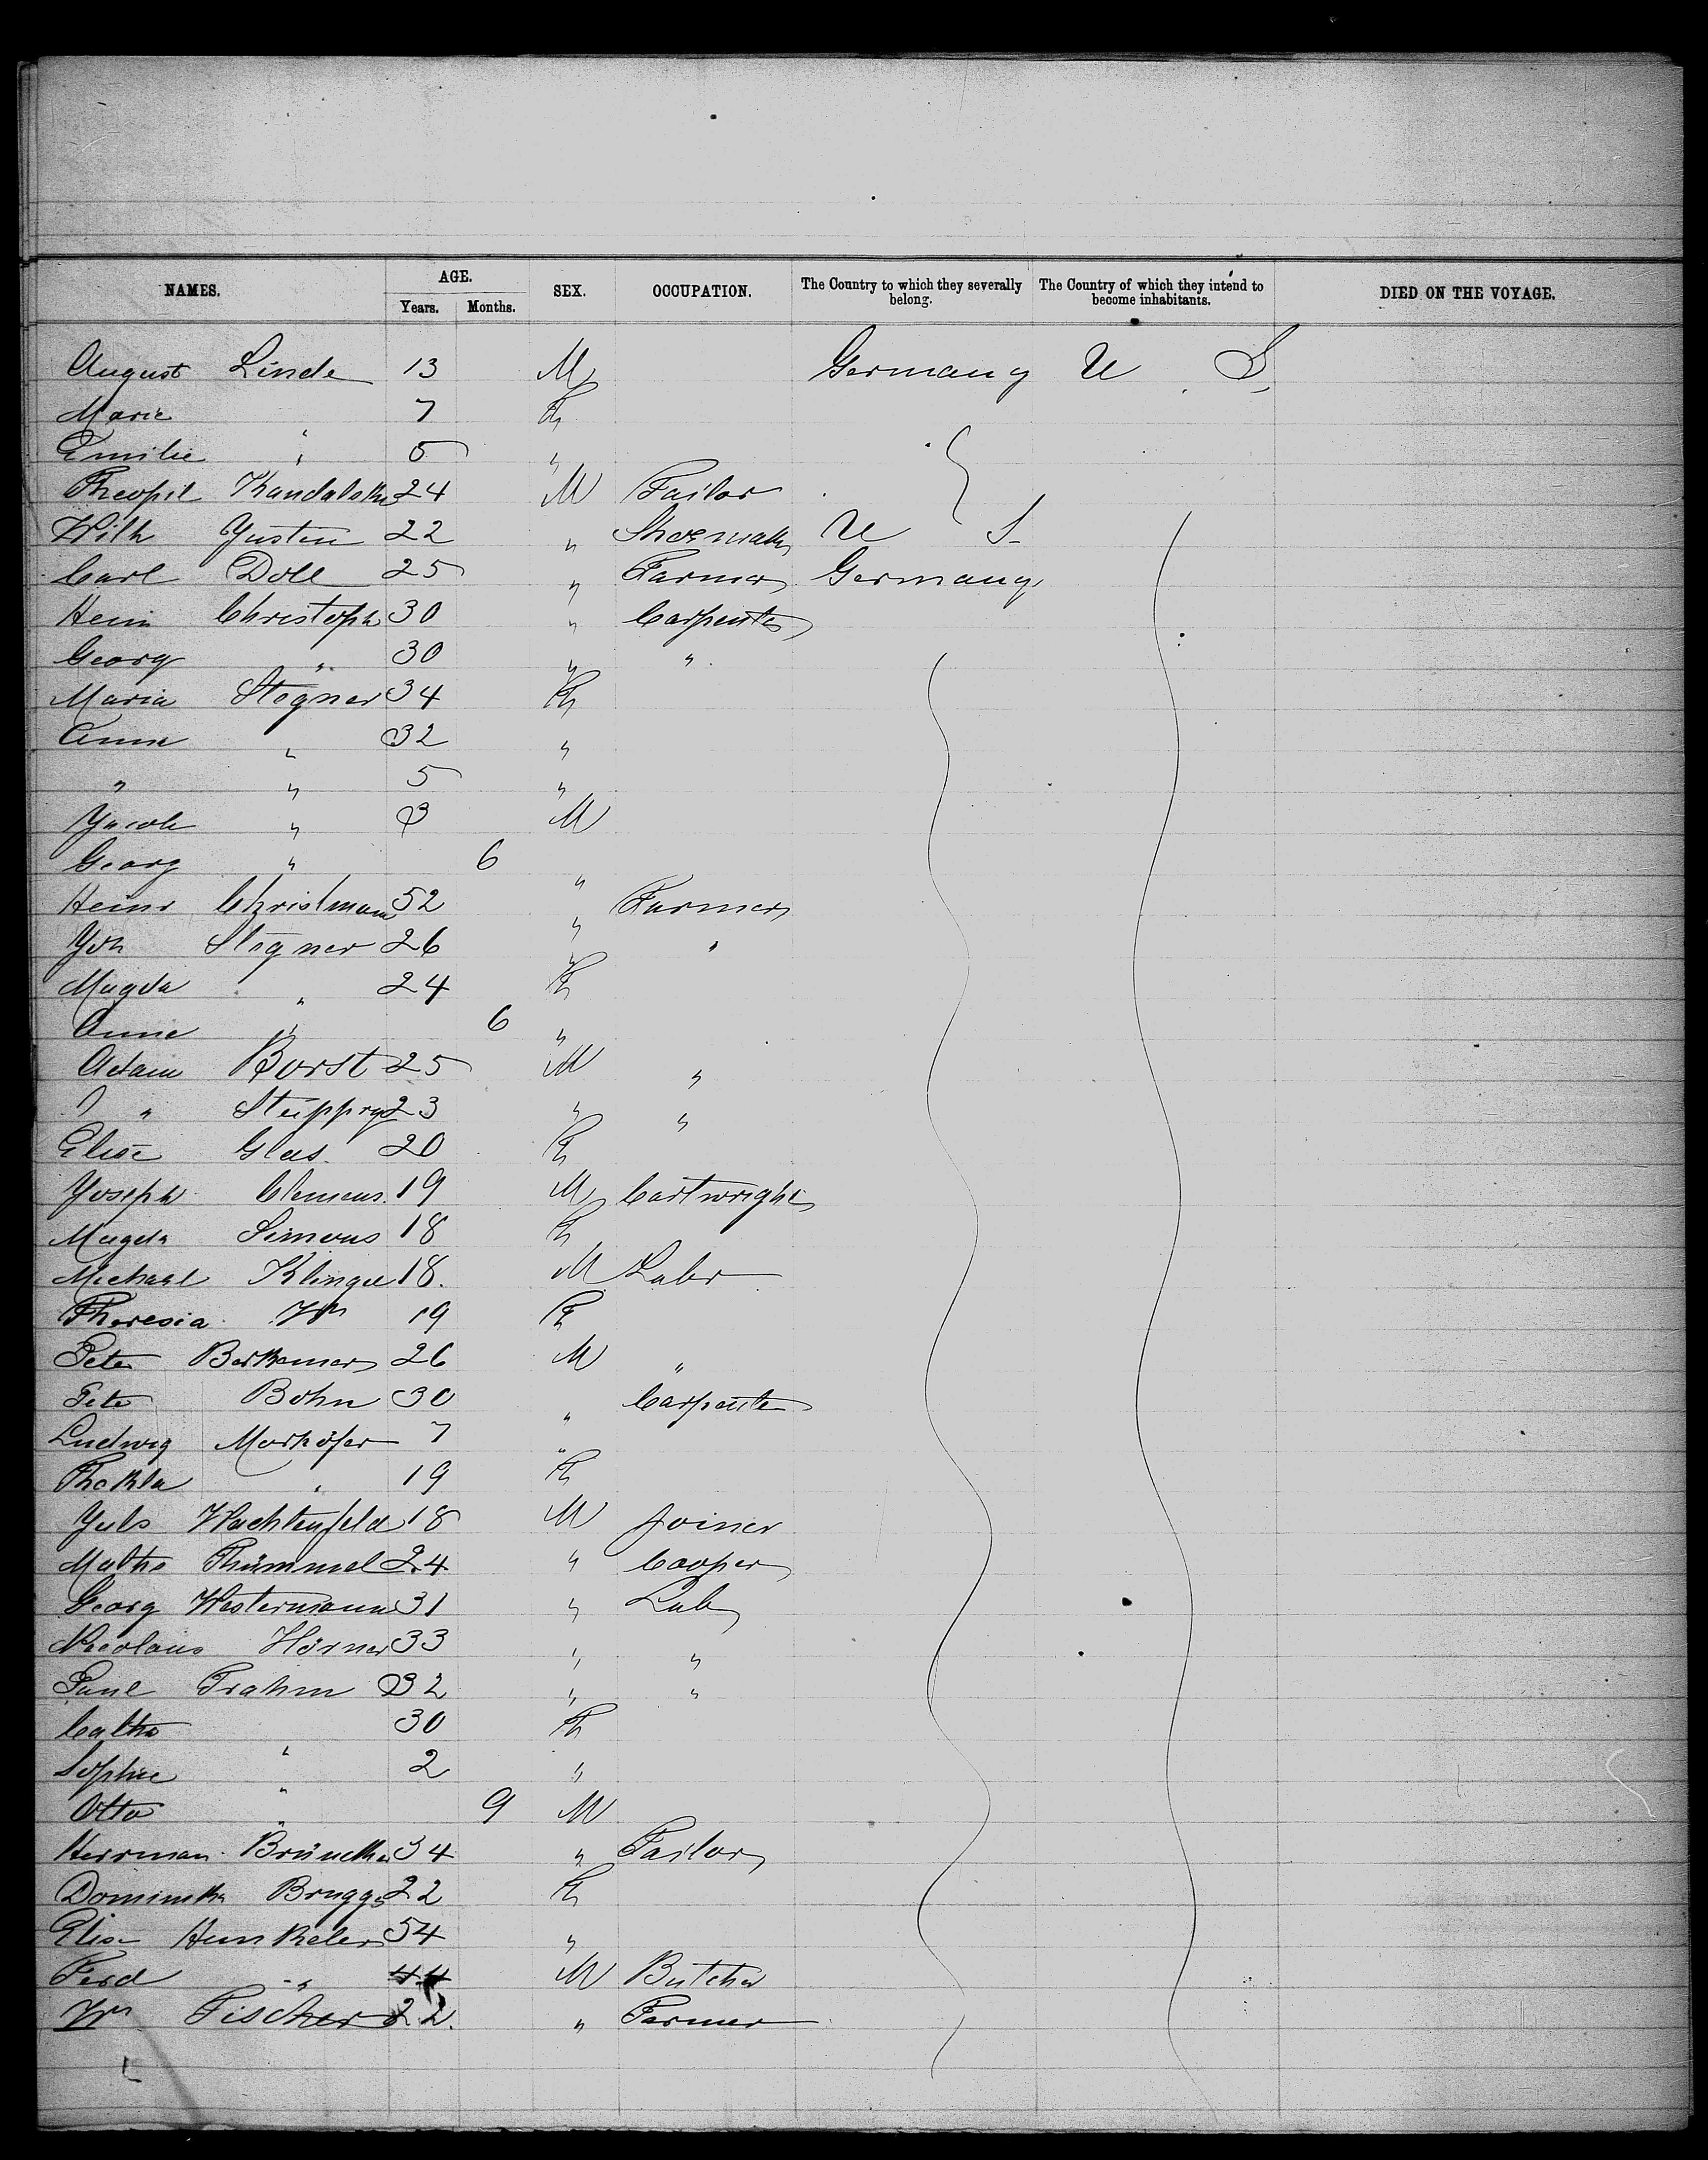 NAMES. AGE. SEX. OCCUPATION. The Country to which they severally belong. The Country of which they intend to become inhabitants. DIED ON THE VOYAGE.
Years. Months.
August Linde 13 M Germany U S
Marie 7 F
Emilie " 5 "
Theopil 24 M Tailor
Wilh Justin 22 " Shoemak U S
Carl Doll 25 " Farmer Germany
Hein Christoph 30 " Carpenter
Georg " 30 " "
Maria Stegner 34 F
Anna " 32 "
" " 5 "
Jacob " 3 M
Georg " 6 "
Heinr Christmann 52 " Farmer
Joh Stegner 26 " "
Magda " 24 F
Anna " 6 "
Adam Borst 25 M "
" 23 " "
Elise Glas 20 F
Joseph Clemens. 19 M Cartwright
Magda Simons 18 F
Michael Klingel 18. M Labr
Theresia Wm 19 F
Peter Berkemer 26 M "
Peter Bohn 30 " Carpenter
Ludwig Morhöfer 7 "
Thekla " 19 F
Juls Wachtenfeld 18 M Joiner
Mathe Thümmel 24 " Cooper
Georg Westermann 31 " Lab
Nicolaus Hörner 33 " "
Paul Frahm 32 " "
Cathe 30 F
Sophie " 2 "
Otto " 9 M
Herrman 34 " Tailor
Dominika Brugge 22 F
Elise Hunkeler 54 "
Ferd " 44 M Butcher
Wm Fischer 22. " Farmer